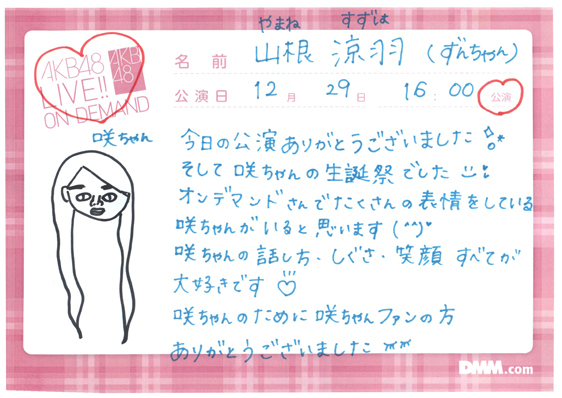 やまね すずは
名前 山根 涼羽 (ずんちゃん)
AKB48
LIVE!!
ON DEMAND
AKB
48
公演日 12月 29日 16:00 公演
咲ちゃん
今日の公演ありがとうございました
そして咲ちゃんの生誕祭でした
オンデマンドさんでたくさんの表情をしている
咲ちゃんがいると思います(^^)
咲ちゃんの話し方、しぐさ、笑顔 すべてが
大好きです♡
咲ちゃんのために咲ちゃんファンの方
ありがとうございました
DMM.com